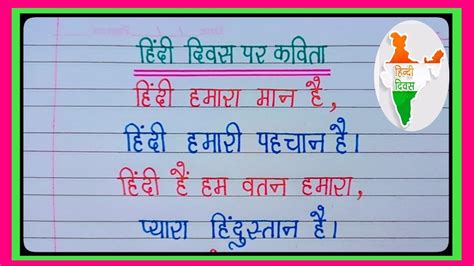 हिंदी दिवस पर कविता
हिंदी हमारा मान है,
हिंदी हमारी पहचान है।
हिंदी हैं हम वतन हमारा,
प्यारा हिंदुस्तान है।
हिन्दी
दिवस